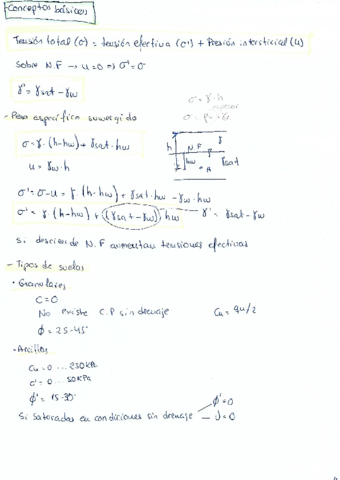 Conceptos básicos
Tensión total (σ) = tensión efectiva (σ') + Presión intersticial (u)
Sobre N.F → u=0 ⇒ σ'=σ
γ' = γsat - γw
- Peso específico sumergido
σ = γ · h
espesor
σ = γ · (h-hw) + γsat · hw
h N.F γ
hw γsat
A
u = γw · h
σ' = σ - u = γ (h-hw) + γsat · hw - γw · hw
σ' = γ (h-hw) + (γsat - γw) · hw γ' = γsat - γw
Si desciende N.F aumentan tensiones efectivas
- Tipos de suelos
• Granulares
C=0
No existe C.P sin drenaje Cu = qu/2
φ = 25-45°
• Arcillas
Cu = 0 ... 250 KPa
c' = 0 ... 50 KPa
φ' = 15-30°
Si saturadas en condiciones sin drenaje φ'=0
υ=0